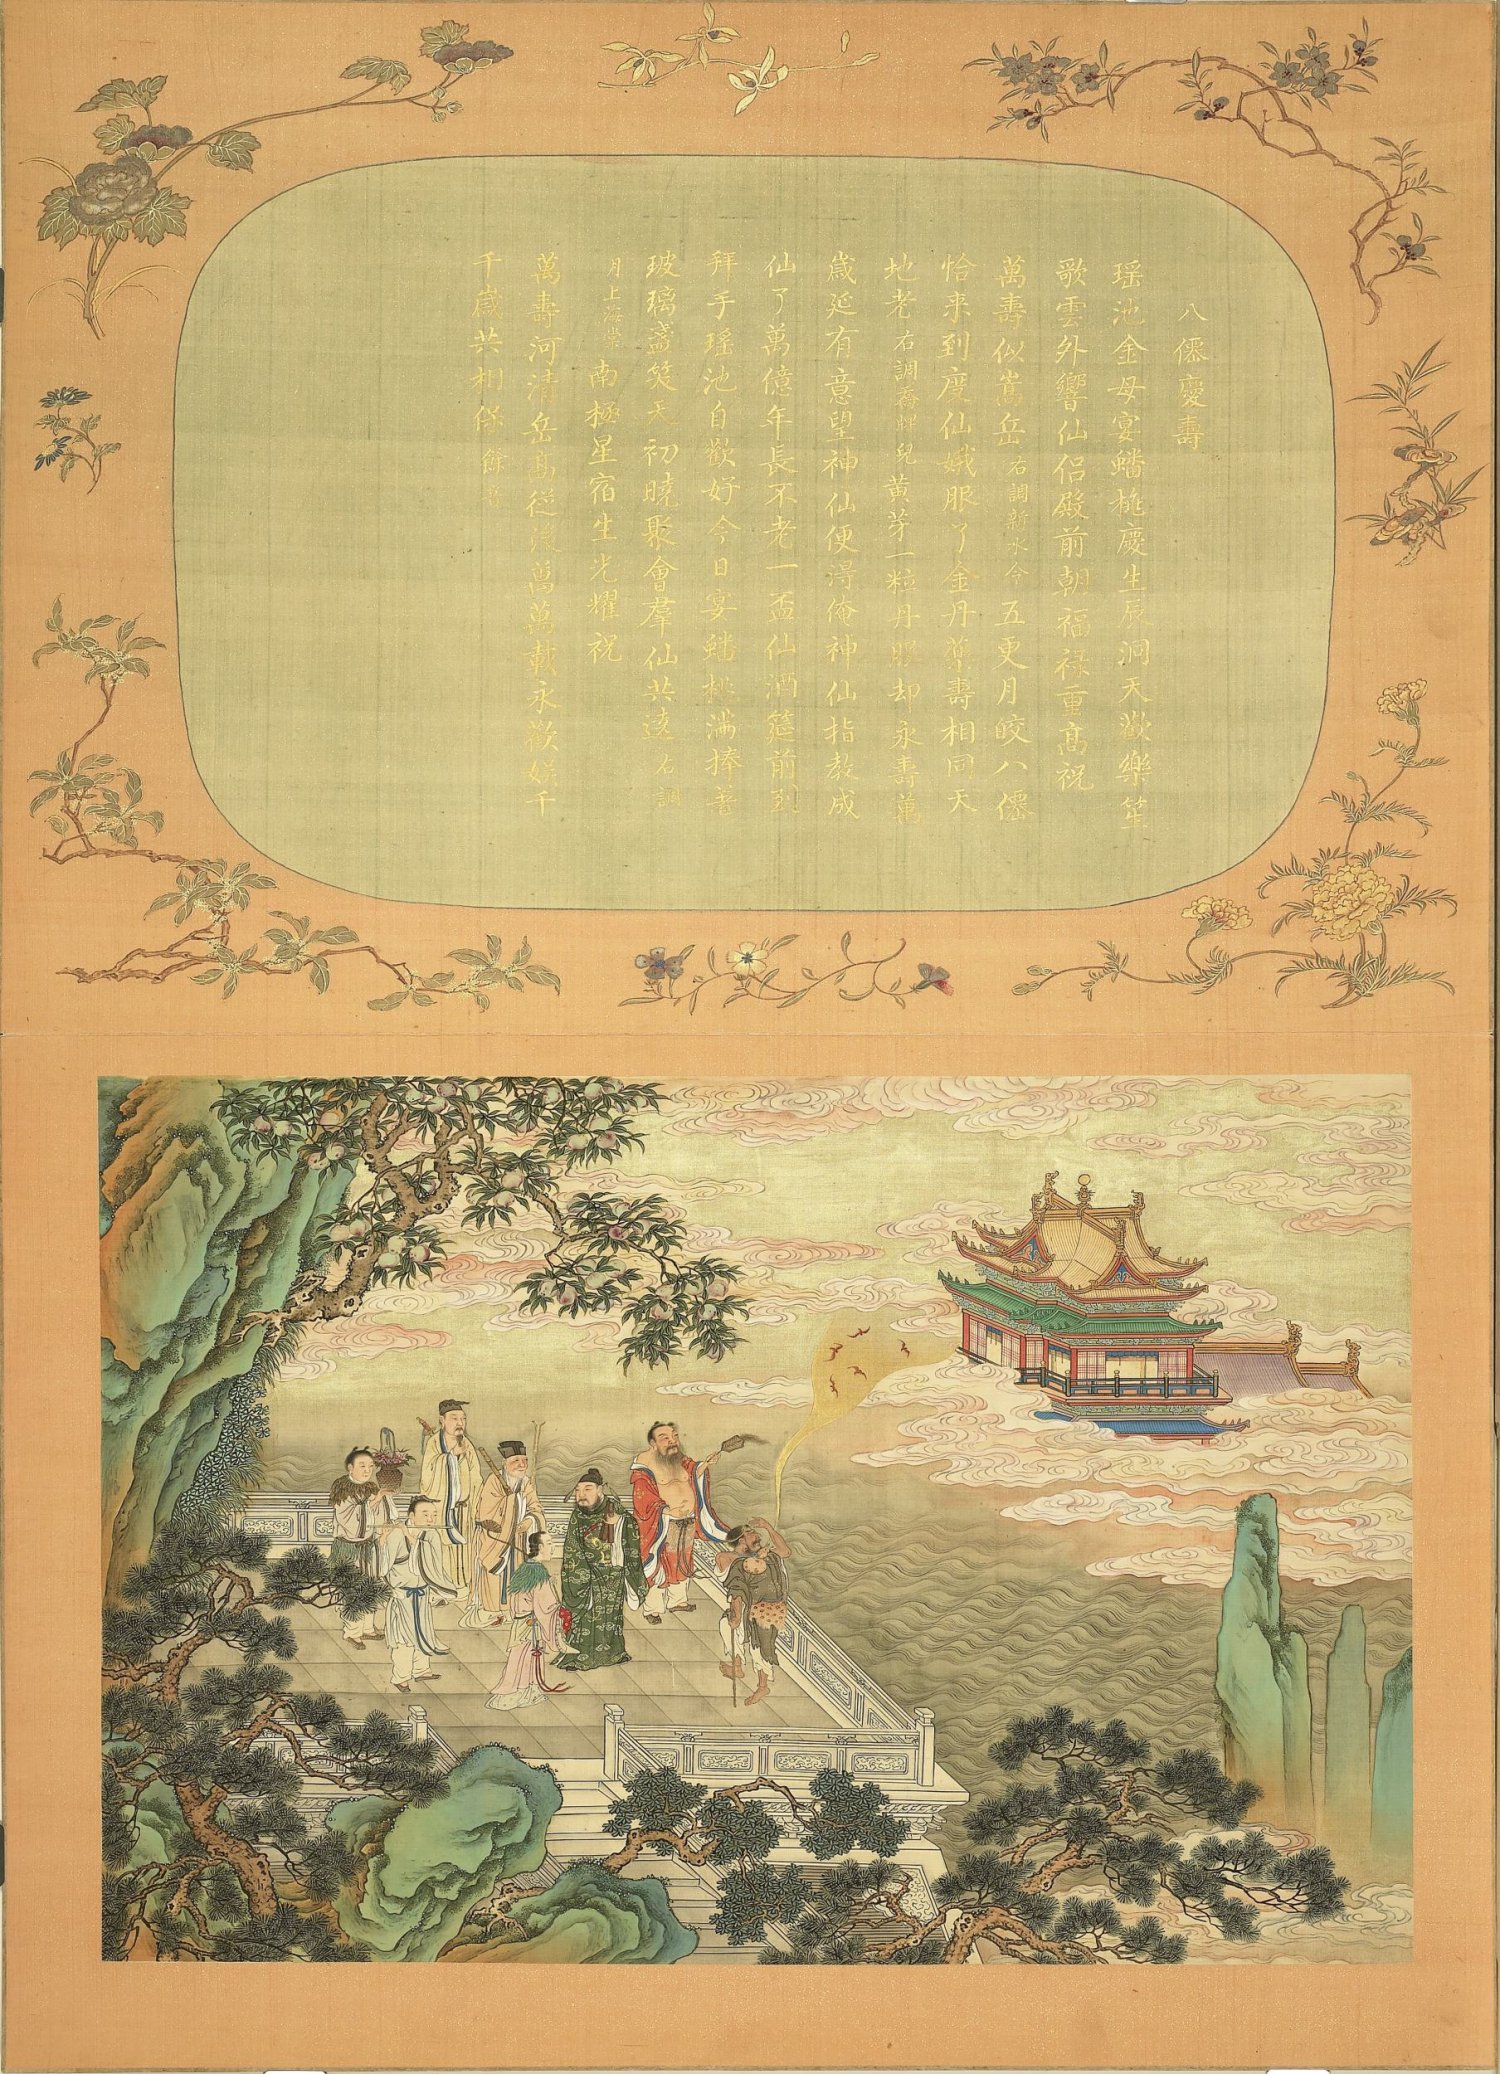 八僊慶壽
瑤池金母宴蟠桃慶生辰洞天歡樂笙
歌雲外響仙侶殿前朝福祿重高祝
萬壽似嵩岳右調新水令五更月皎八僊
恰来到度仙娥服了金丹藥壽相同天
地老右調喬牌兒黃芽一粒丹服却永壽萬
歲延有意望神仙便得俺神仙指教成
仙了萬億年長不老一盃仙酒筵前到
拜手瑤池自飲好今日宴蟠桃滿捧着
玻璃盞笑天初曉聚會羣仙共遶右調
月上海棠南極星宿生光耀祝
萬壽河清岳高從後萬萬載永歡娛千
千歲共相保餘音